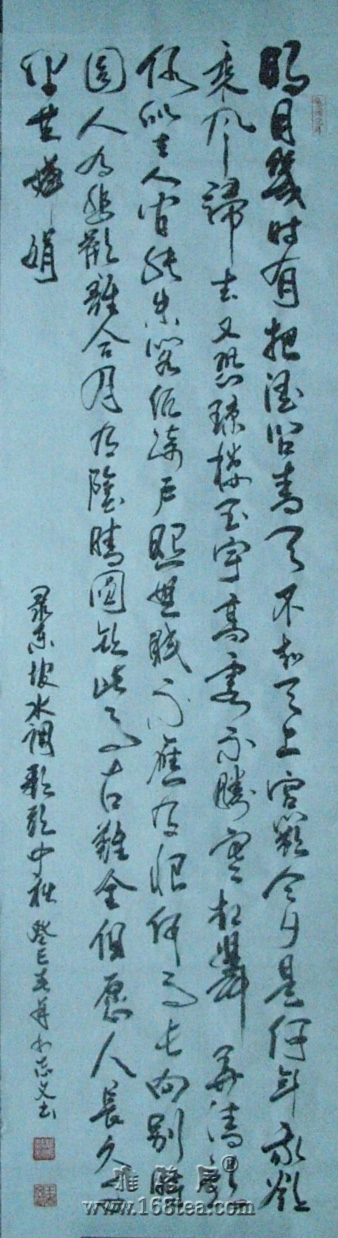 明月幾時有把酒问青天不知天上宫闕今夕是何年我欲
乘风歸去又恐瓊樓玉宇高處不勝寒起舞弄清影
何似在人间轉朱阁低绮户照無眠不應有恨何事长向别時
圆人有悲歡離合月有陰晴圆缺此事古難全但愿人長久千
里共嬋娟
录东坡水调歌頭中秋 癸巳
www.168tea.com